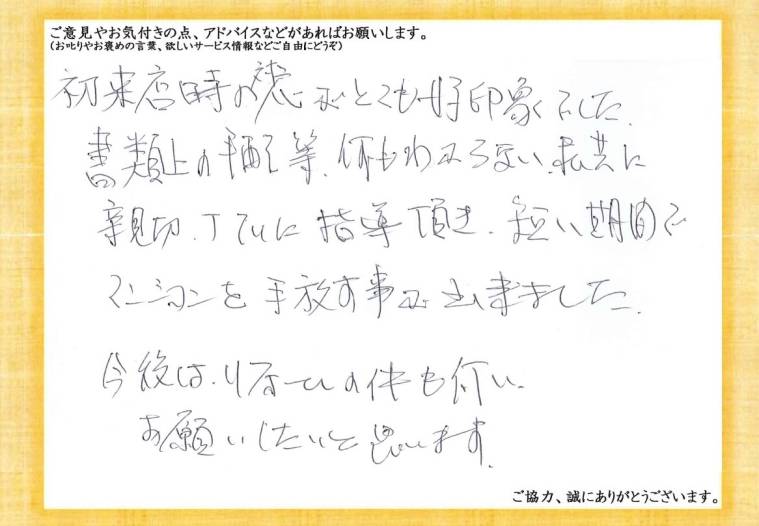 ご意見やお気付きの点、アドバイスなどがあればお願いします。
(お叱りやお褒めの言葉、欲しいサービス情報などご自由にどうぞ)
初来店時の対応がとても好印象でした。
書類上の手配等、何もわからない、私共に
親切、丁ねいに指導頂き、短い期間で
マンションを手放す事が出来ました。
今後は、リフォームの件も伺い、
お願いしたいと思います。
ご協力、誠にありがとうございます。